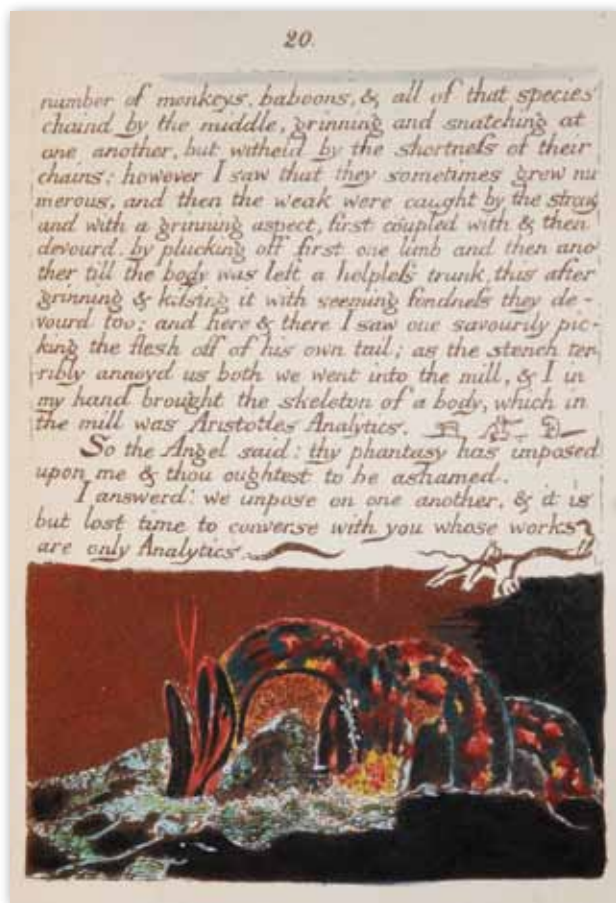 20.
number of monkeys, baboons, & all of that species
chaind by the middle, grinning and snatching at
one another, but witheld by the shortness of their
chains: however I saw that they sometimes grew nu
merous, and then the weak were caught by the strong
and with a grinning aspect, first coupled with & then
devourd, by plucking off first one limb and then ano
ther till the body was left a helpless trunk, this after
grinning & kissing it with seeming fondness they de-
vourd too; and here & there I saw one savourily pic-
king the flesh off of his own tail; as the stench ter-
ribly annoyd us both we went into the mill, & I in
my hand brought the skeleton of a body, which in
the mill was Aristotles Analytics.
So the Angel said: thy phantasy has imposed
upon me & thou oughtest to be ashamed.
I answerd: we impose on one another, & it is
but lost time to converse with you whose works
are only Analytics